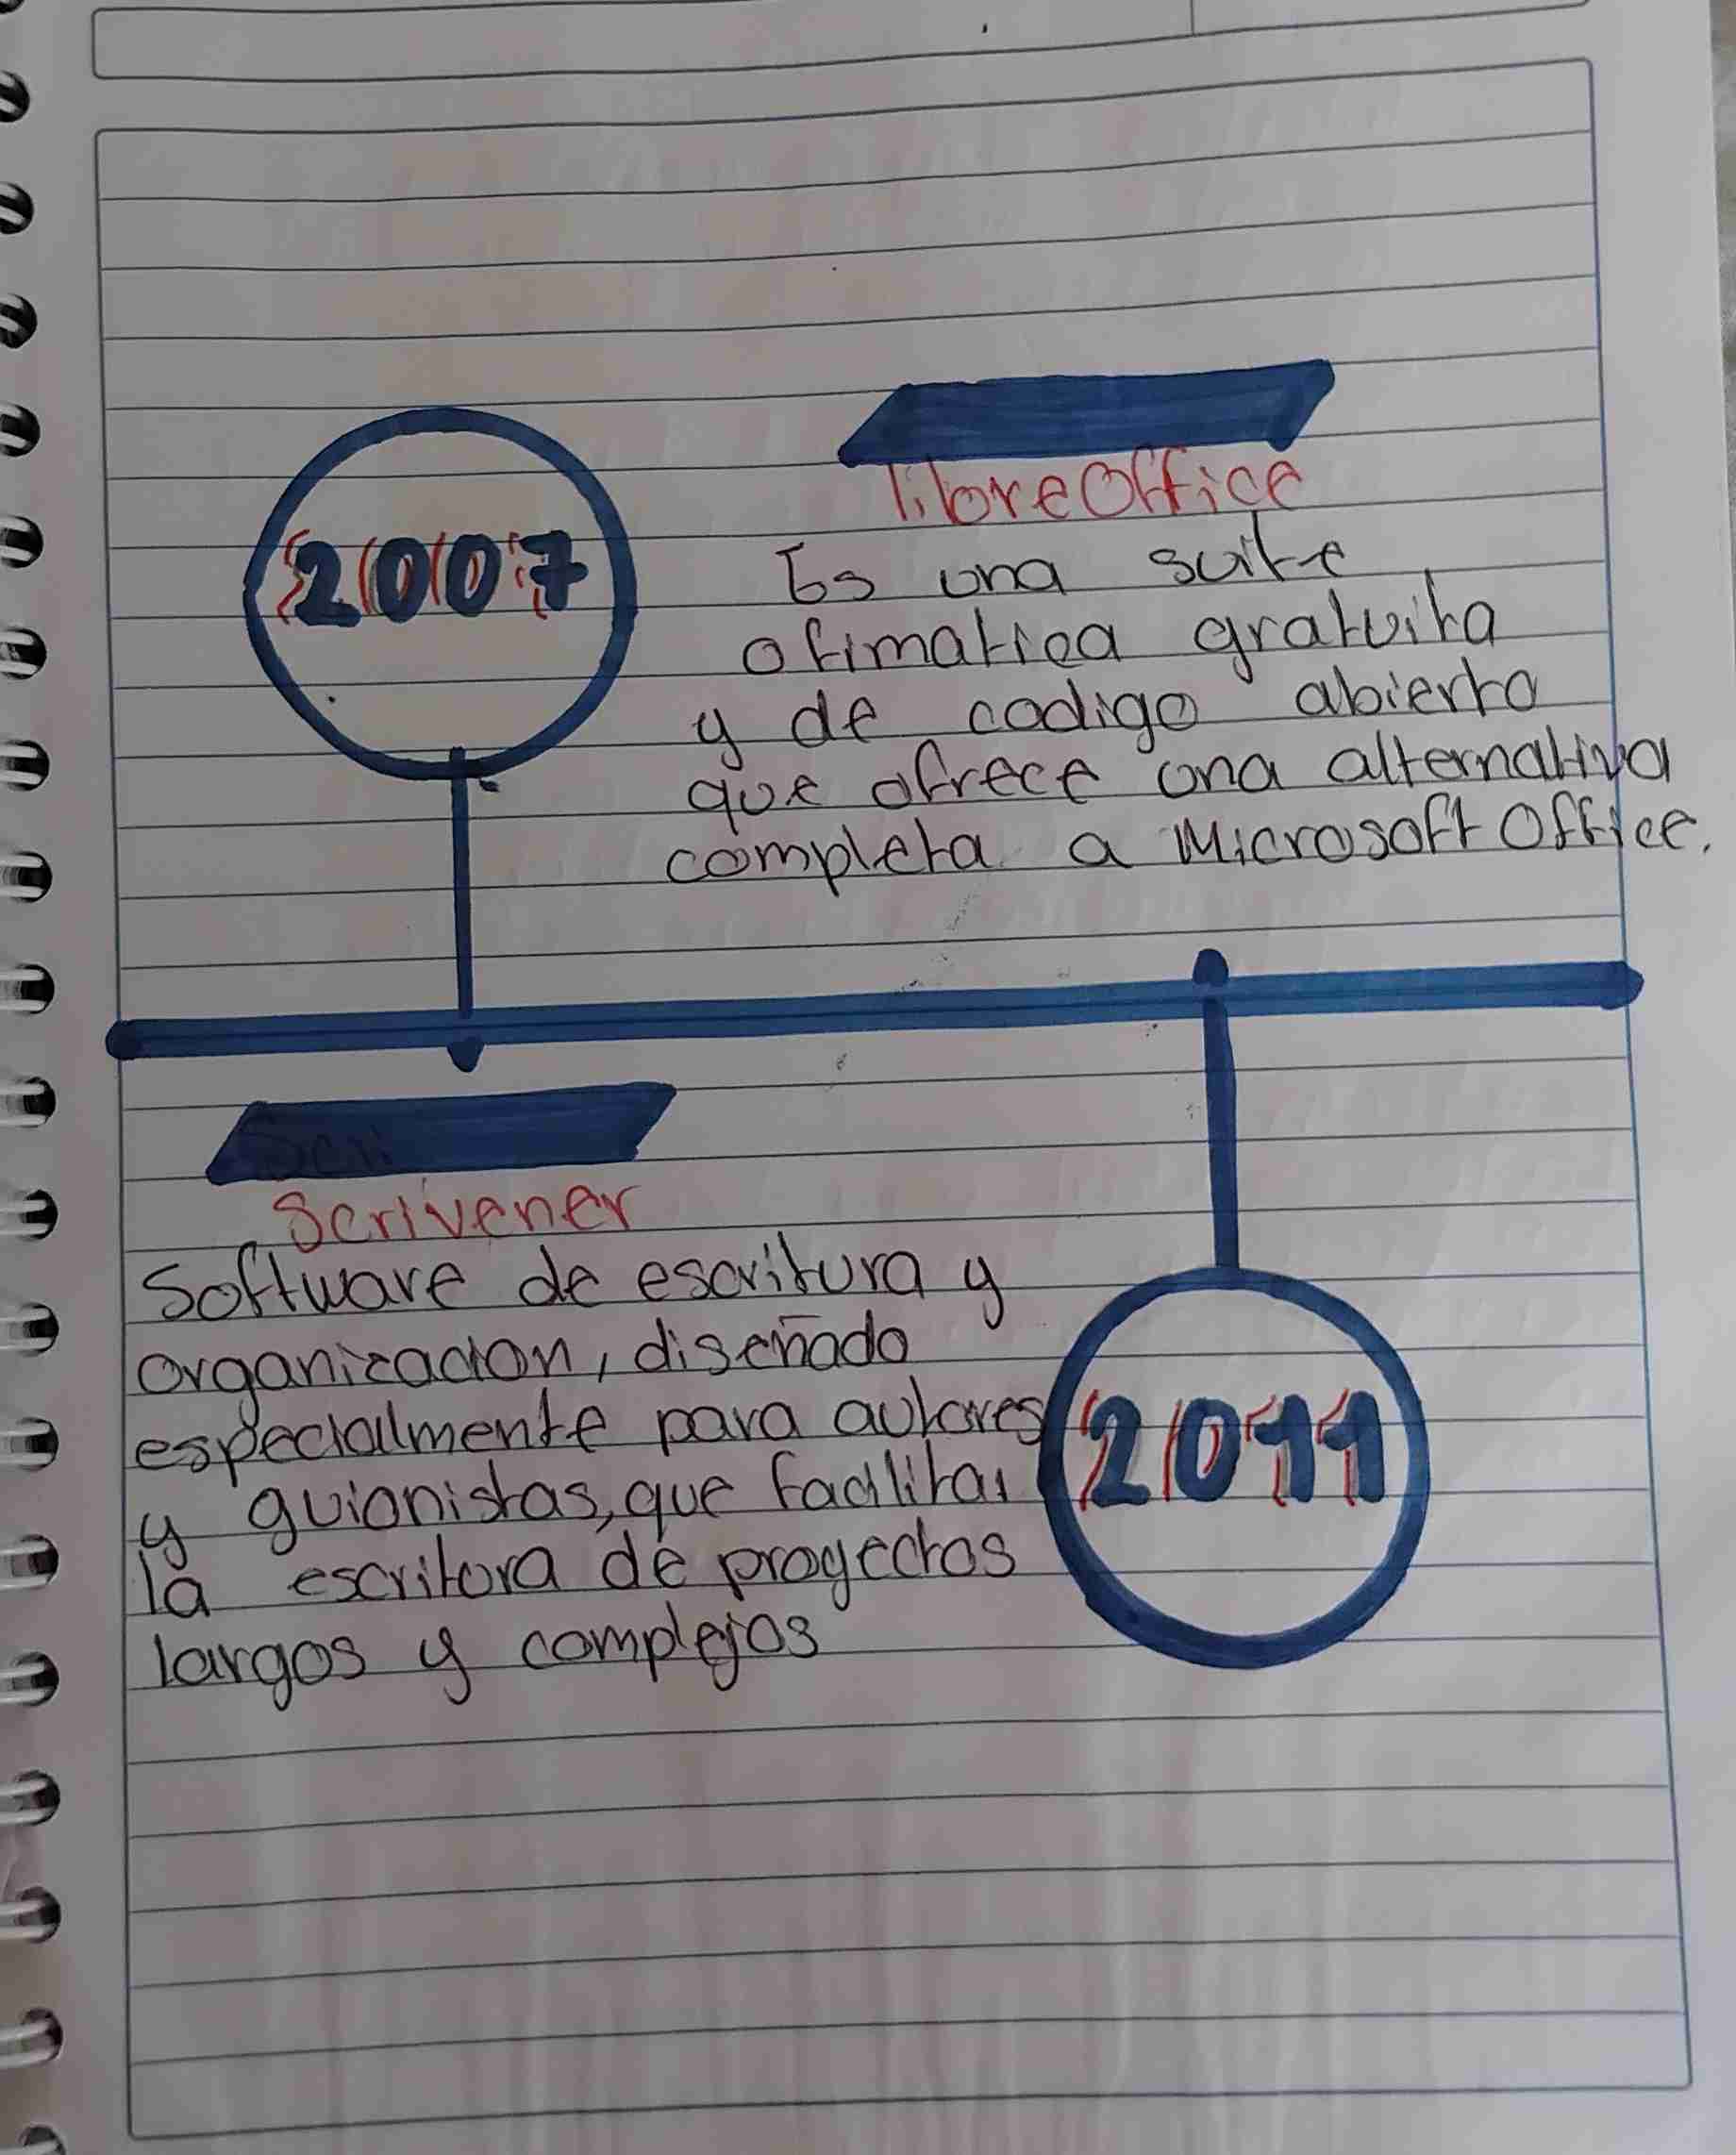 libreOffice
2007
Es una suite
ofimatica gratuita
y de codigo abierto
que ofrece una alternativa
completa a Microsoft Office.
Scri
Scrivener
Software de escritura y
organizacion, diseñado
especialmente para autores
y guionistas, que facilitar
la escritura de proyectos
largos y complejos
2011